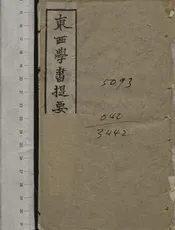 東西學書提要
5093
042
3442